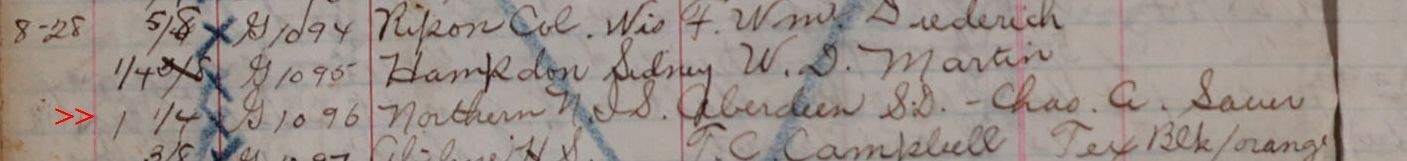 8-28 5/8 x G 1094 Ripon Col. Wis F. Wm. Diederich
1/4 G 1095 Hampdon Sidney W. D. Martin
>> 1 1/4 x G 1096 Northern N. I. S. Aberdeen S.D. - Chas. A. Sauer
3/8 x G 1097 Abilene H S. T. C. Campbell Tex Blk/orange